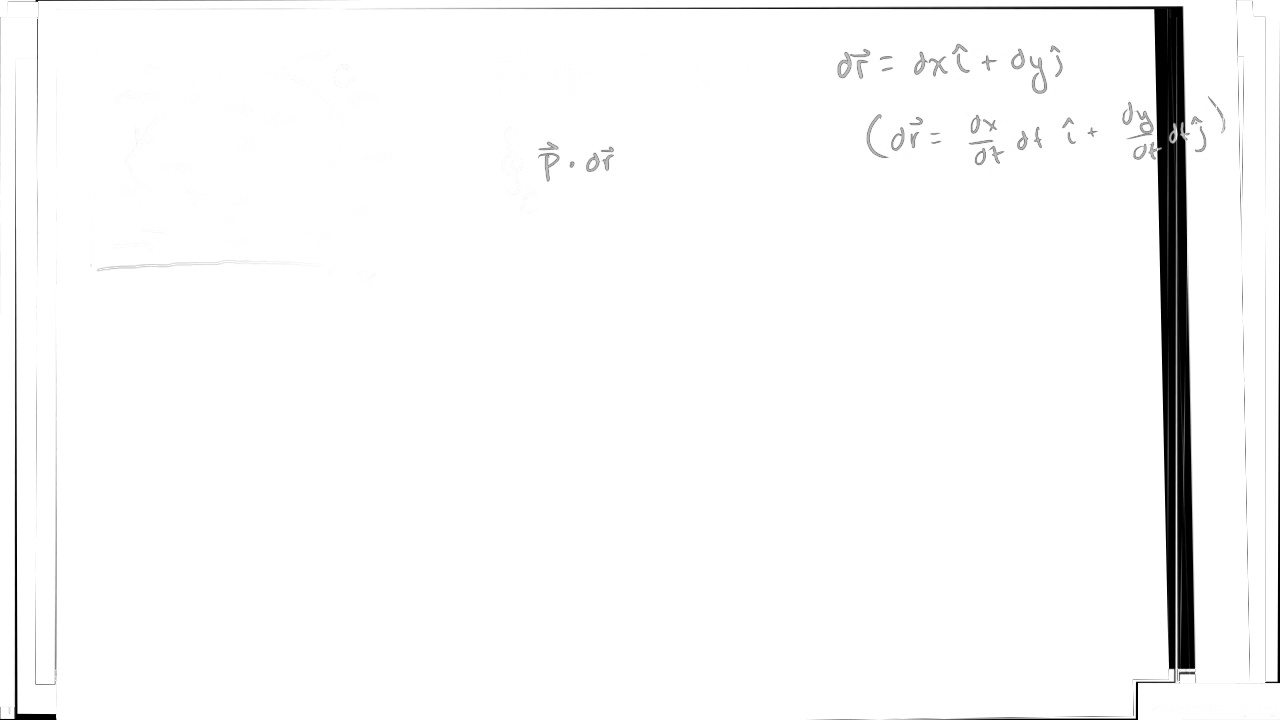 d\vec{r} = dx î + dy ĵ
(d\vec{r} = \frac{dx}{dt} dt î + \frac{dy}{dt} dt ĵ)
\vec{p} · d\vec{r}